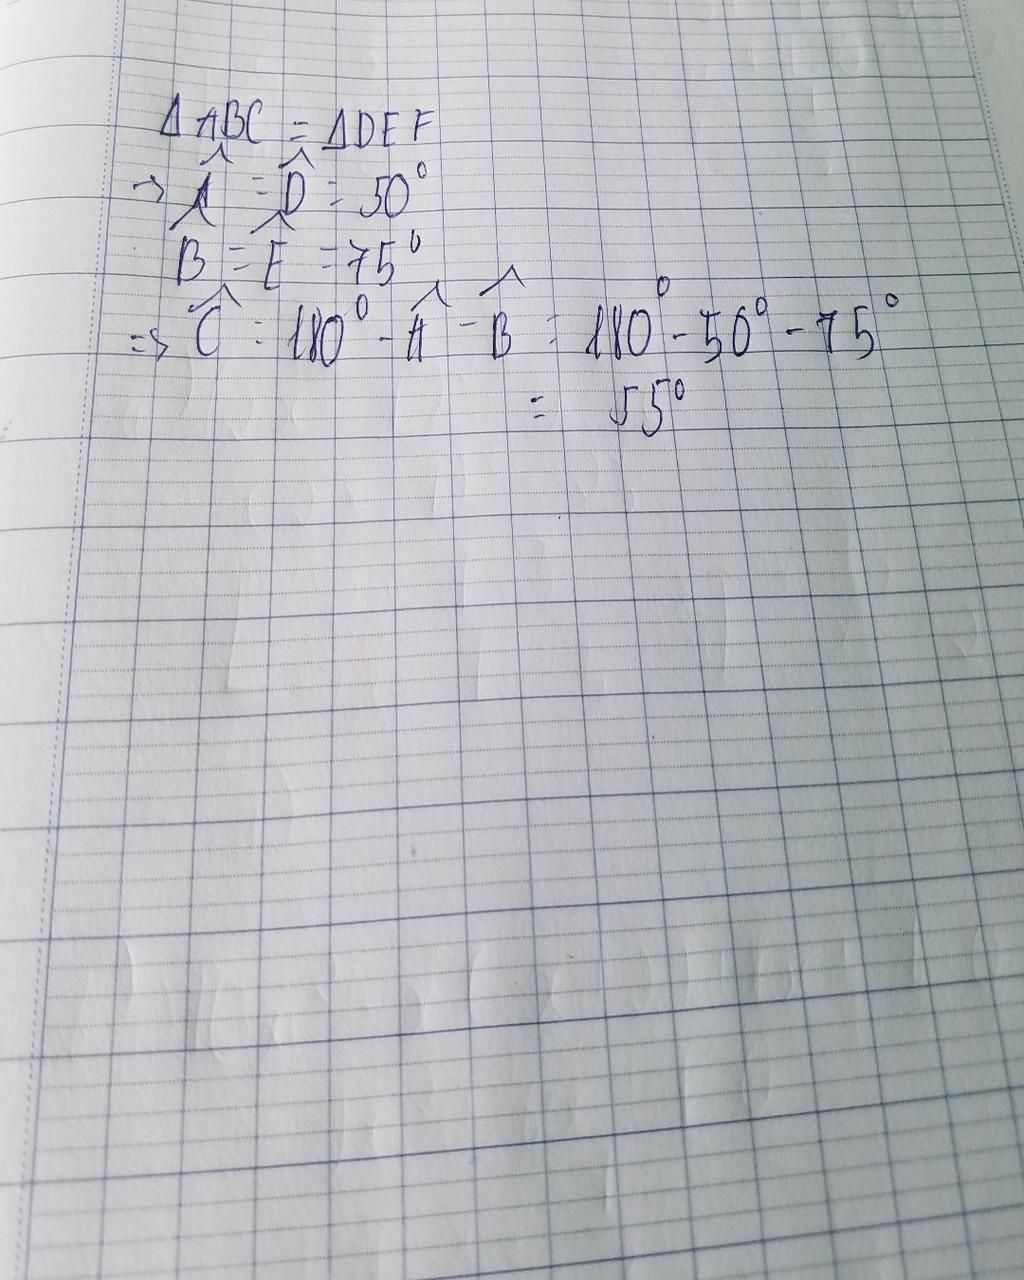 Δ ABC = Δ DEF
→ Â = D̂ = 50°
B̂ = Ê = 75°
=> Ĉ = 180° - Â - B̂ = 180° - 50° - 75°
= 55°